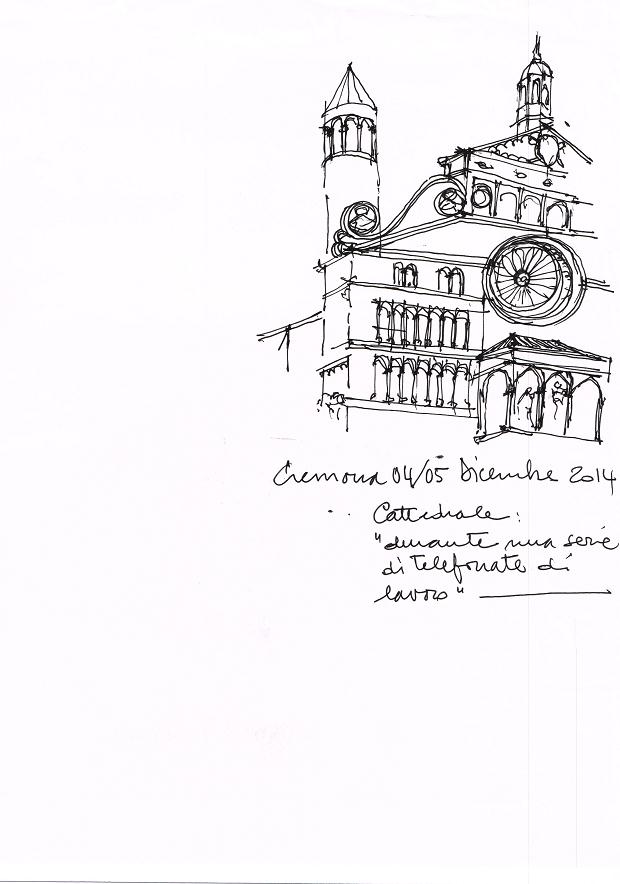 Cremona 04/05 Dicembre 2014
Cattedrale:
"durante una serie
di telefonate di
lavoro"